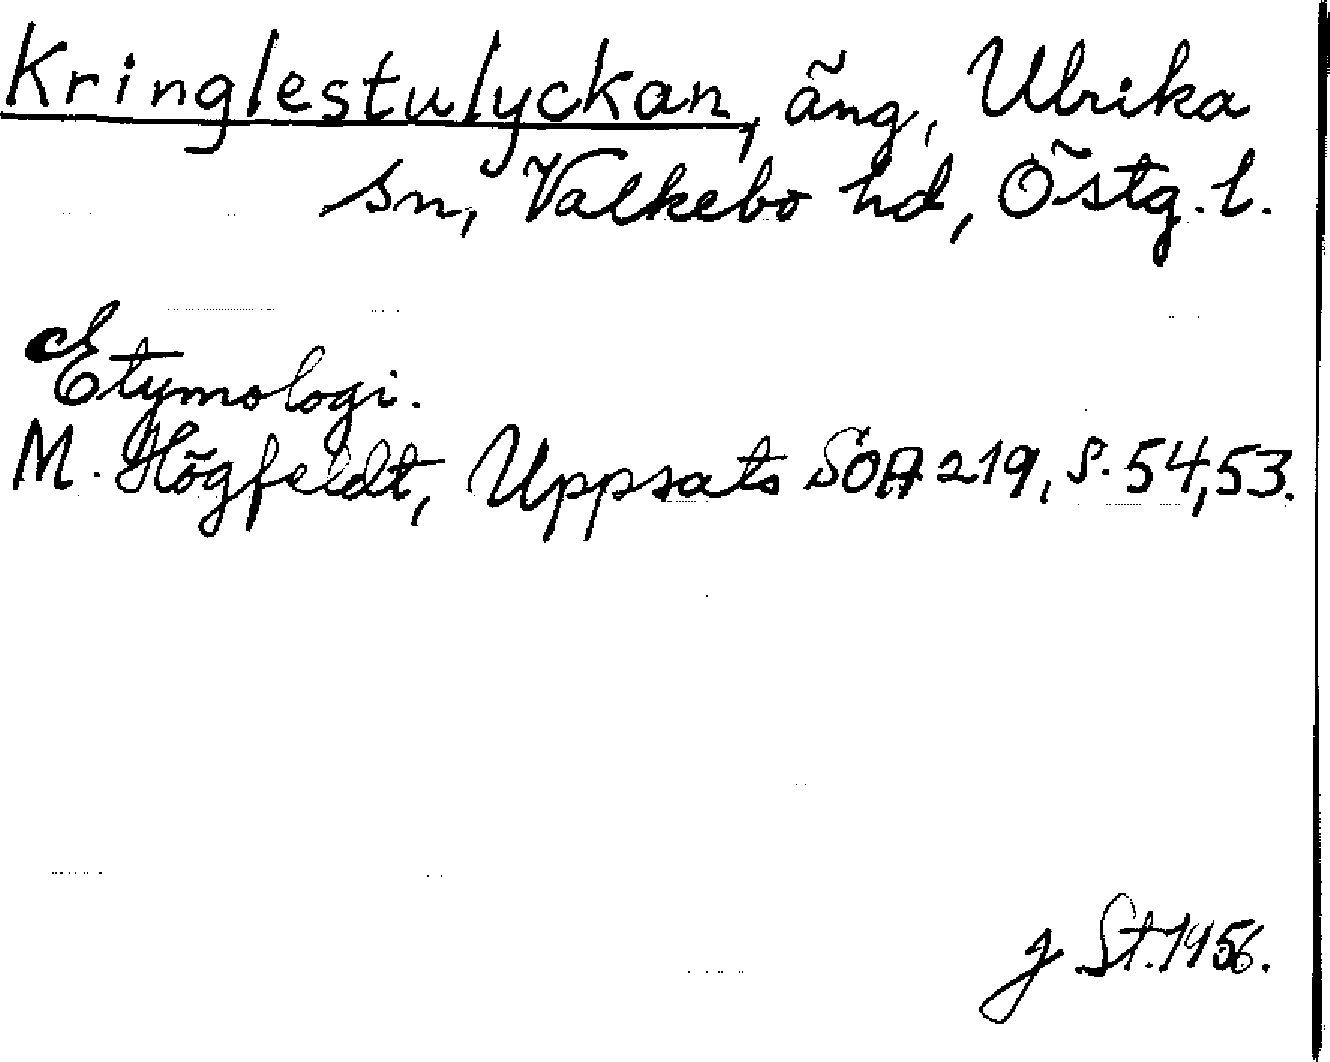 Kringlestulyckan, äng, Ulrika
sn, Valkebo hd, Östg. l.
Etymologi.
M. Högfeldt, Uppsats SOA 219, s. 54, 53.
J St. 1956.